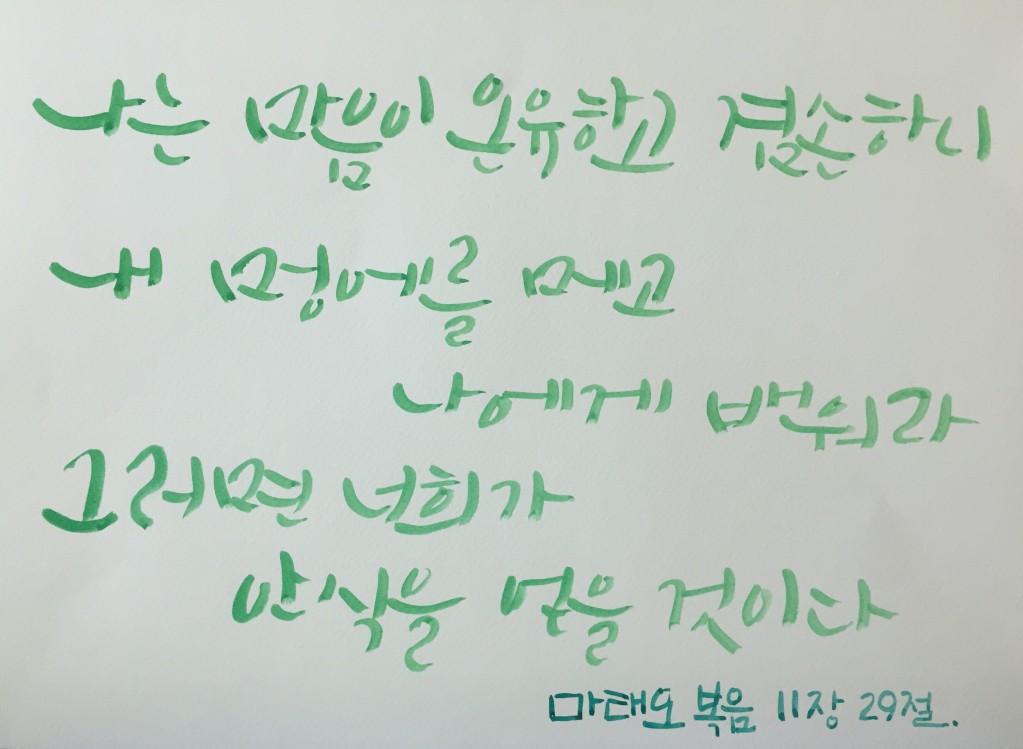 나는 맘음이 온유하고 겸손하니
내 멍에를 메고
나에게 배워라
그러면 너희가
안식을 얻을 것이다
마태오 복음 11장 29절.